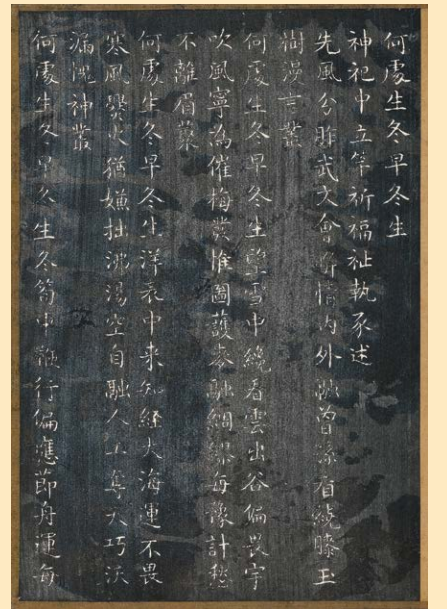 何處生冬早冬生
神祀中立竿祈福祉執豕述
先風分胙武文會聯情內外融曾孫有繞膝玉
樹漫言叢
何處生冬早冬生望雪中纔看雲出谷偏畏宇
吹風寧為催梅蕊惟圖護麥融綢繆每豫計愁
不離眉叢
何處生冬早冬生洋表中來知經大海運不畏
寒風爨火猶嫌拙沸湯空自融人工奪天巧沃
漏洩神叢
何處生冬早冬生冬筍中 行偏應節舟運每